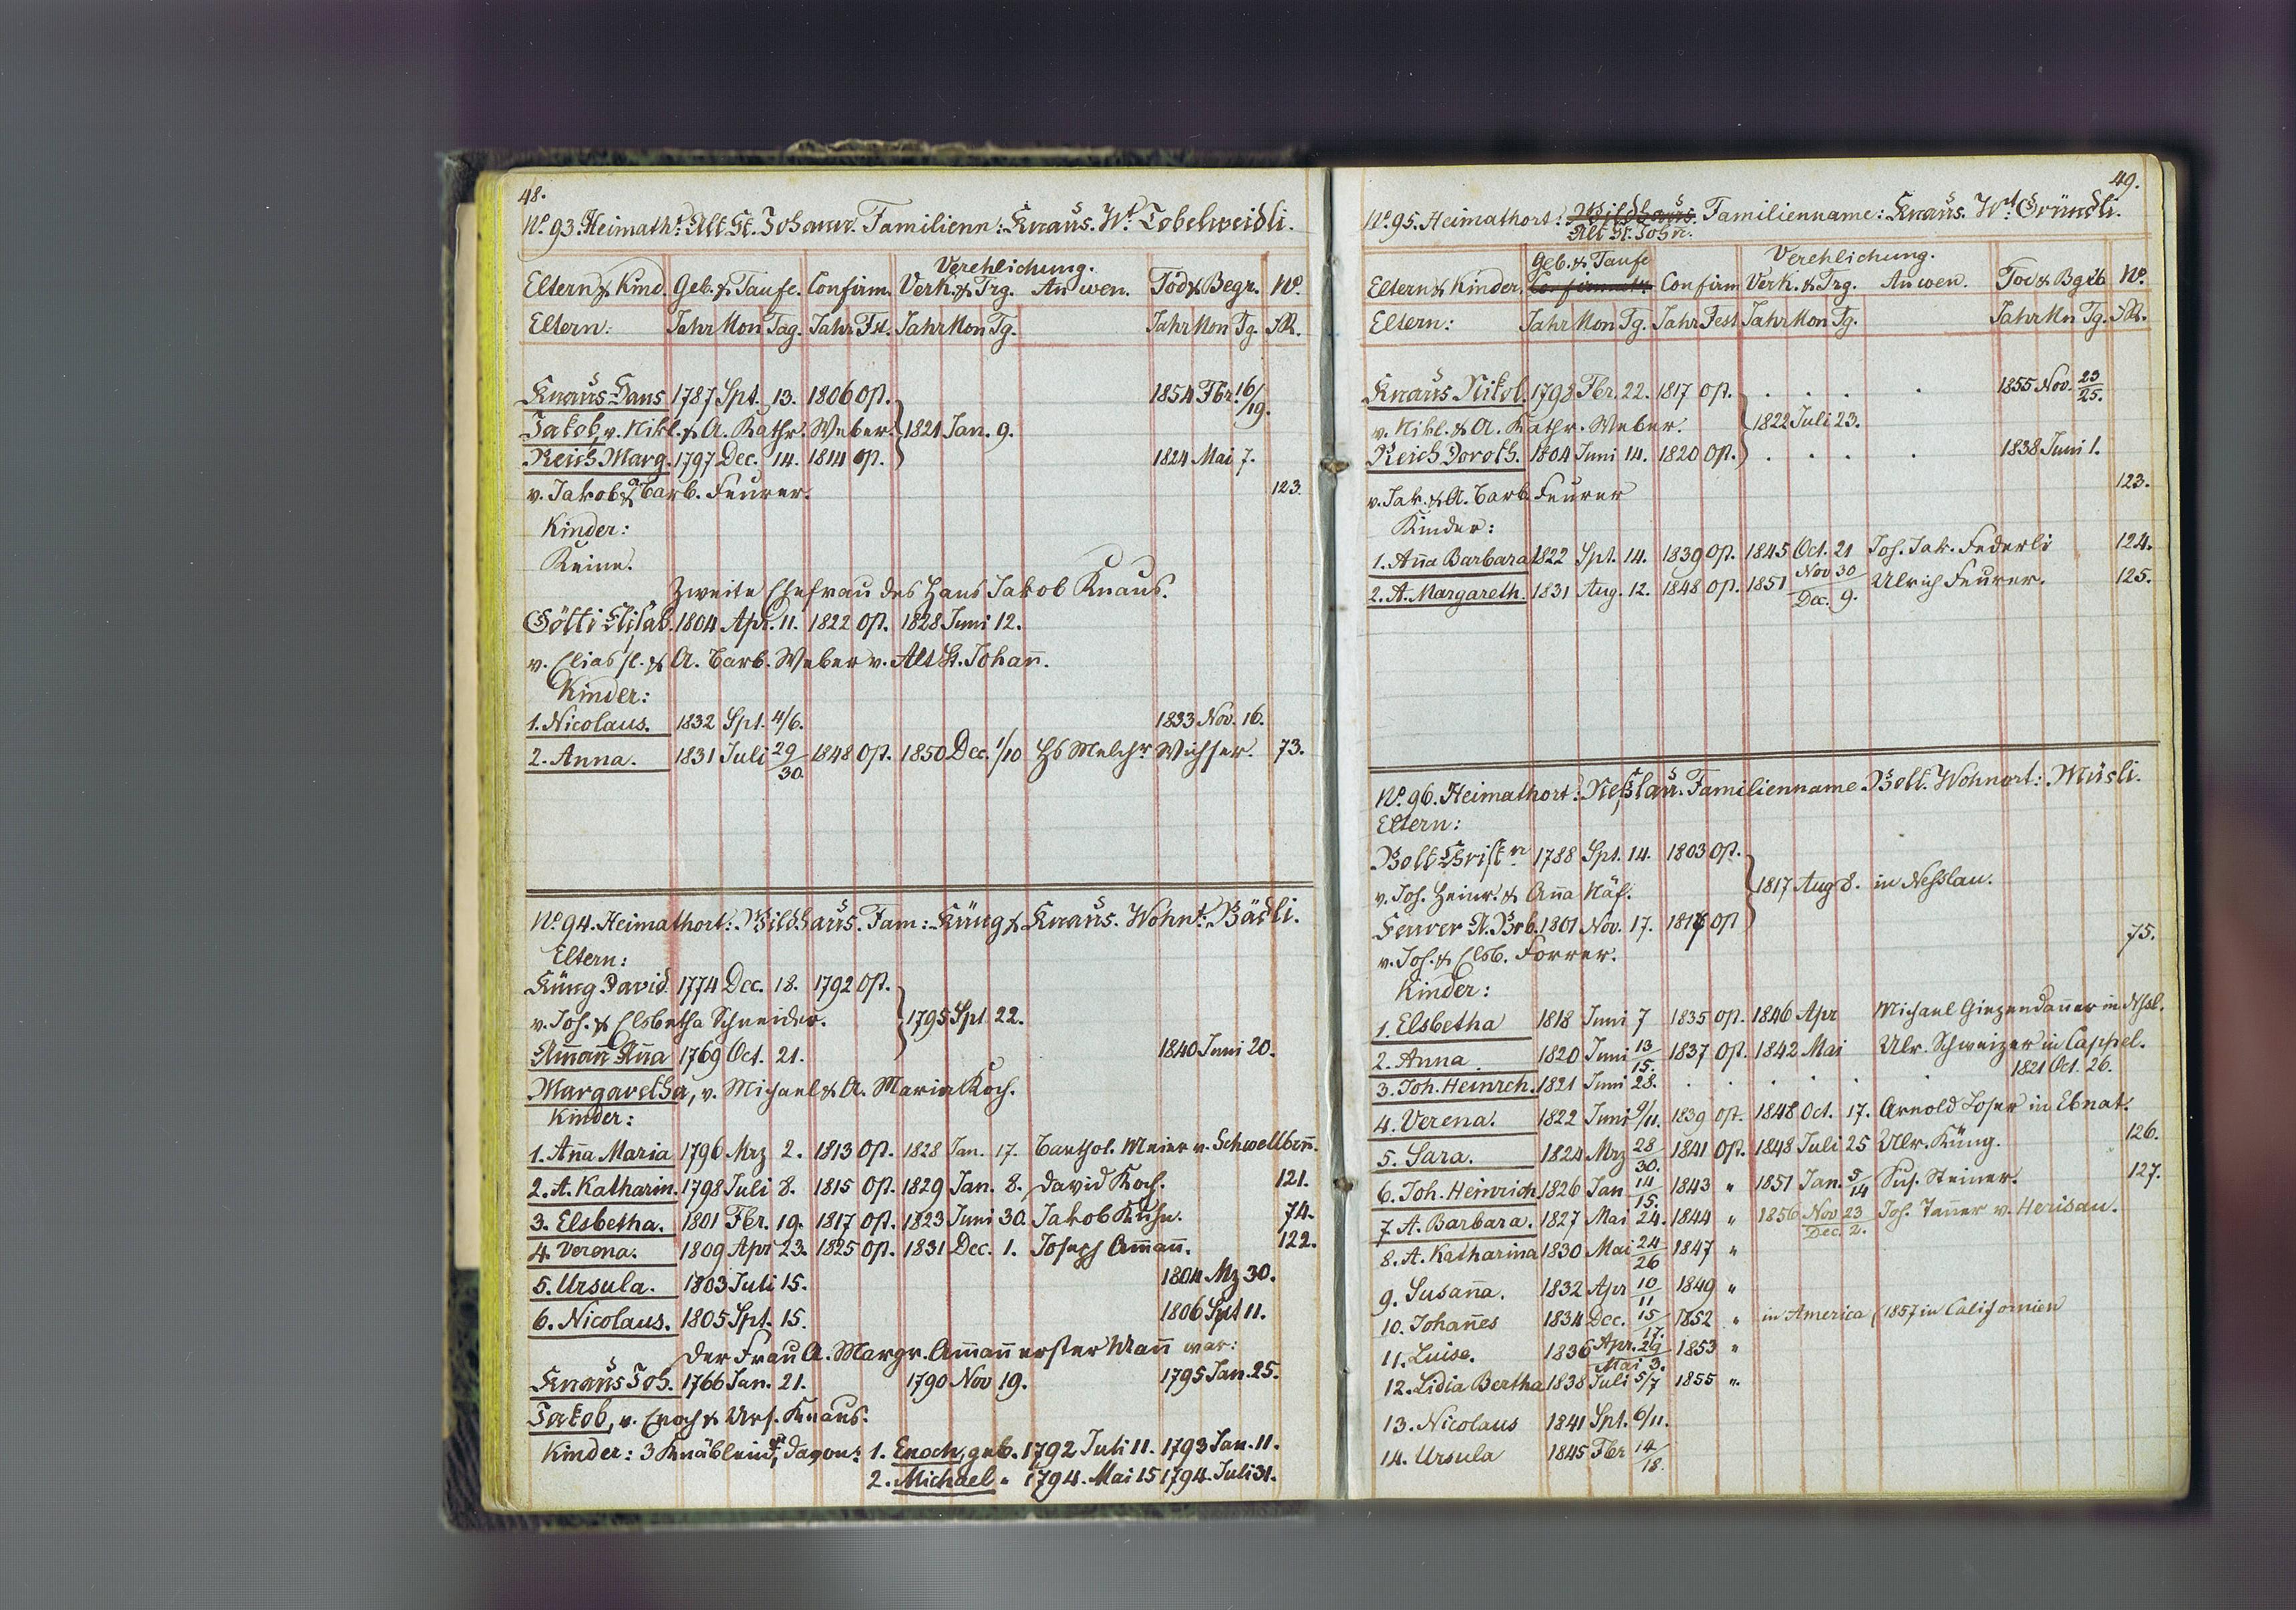 48.
No. 93. Heimatht: Alt St. Johann. Familienn: Knaus. Wt. Tobelweidli.
Verehlichung.
Eltern & Kind. Geb. & Taufe. Confirm. Verk. & Trg. An wen. Tod & Begr. No.
Eltern: Jahr Mon Tag. Jahr Fst. Jahr Mon Tg. Jahr Mon Tg. FR.
Knaus Hans 1787 Spt. 13. 1806 Ost. 1854 Fbr. 16/19.
Jakob, v. Nikl. & A. Kathr. Weber. 1821 Jan. 9.
Reich Marg. 1797 Dec. 14. 1814 Ost. 1824 Mai 7.
v. Jakob & Barb. Feurer. 123.
Kinder:
Keine.
Zweite Ehefrau des Hans Jakob Knaus.
Götti Elisab. 1804 Apr. 11. 1822 Ost. 1828 Juni 12.
v. Elias sl. & A. Barb. Weber v. Alt St. Johann̄.
Kinder:
1. Nicolaus. 1832 Spt. 4/6. 1833 Nov. 16.
2. Anna. 1831 Juli 29/30. 1848 Ost. 1850 Dec. 1/10 Hs Melchr. Wichser. 73.
No. 94. Heimathort: Wildhaus. Fam: Küng & Knaus. Wohnt: Bädli.
Eltern:
Küng David. 1774 Dec. 18. 1792 Ost.
v. Joh. & Elsbetha Schneider. 1795 Spt 22.
Am̄an̄ An̄a 1769 Oct. 21. 1840 Juni 20.
Margaretha, v. Michael & A. Maria Koch.
Kinder:
1. An̄a Maria 1796 Mrz 2. 1813 Ost. 1828 Jan. 17. Barthol. Meier v. Schwellbrn̄.
2. A. Katharin. 1798 Juli 8. 1815 Ost. 1829 Jan. 8. David Koch. 121.
3. Elsbetha. 1801 Fbr. 19. 1817 Ost. 1823 Juni 30. Jakob Kuhn. 74.
4. Verena. 1809 Apr 23. 1825 Ost. 1831 Dec. 1. Joseph Am̄an̄. 122.
5. Ursula. 1803 Juli 15. 1804 Mz 30.
6. Nicolaus. 1805 Spt. 15. 1806 Spt 11.
Der Frau A. Margr. Am̄an̄ erster Man̄ war:
Knaus Joh. 1766 Jan. 21. 1790 Nov 19. 1795 Jan. 25.
Jakob, v. Enoch & Urs. Knaus.
Kinder: 3 Knäblein, davon: 1. Enoch, geb. 1792 Juli 11. 1793 Jan. 11.
2. Michael " 1794. Mai 15 1794. Juli 31.
49.
No. 95. Heimathort: Wildhaus. Familienname: Knaus. Wt: Gründli.
Alt St. Joh̄n.
Geb. & Taufe Verehlichung.
Eltern & Kinder. Confirmatn. Confirm Verk. & Trg. An wen. Tod & Bgrb No.
Eltern: Jahr Mon Tg. Jahr Fest Jahr Mon Tg. Jahr Mn Tg. FR.
Knaus Nikol. 1798 Fbr. 22. 1817 Ost. 1855 Nov. 23/25.
v. Nikl. & A. Kathr. Weber. 1822 Juli 23.
Reich Doroth. 1804 Juni 14. 1820 Ost. 1838 Juni 1.
v. Jak. & A. Barb. Feurer 123.
Kinder:
1. An̄a Barbara 1822 Spt. 14. 1839 Ost. 1845 Oct. 21 Joh. Jak. Federli 124.
2. A. Margareth. 1831 Aug. 12. 1848 Ost. 1851 Nov 30/Dec. 9. Ulrich Feurer. 125.
No. 96. Heimathort: Neßlau. Familienname Bolt. Wohnort: Müsli.
Eltern:
Bolt Christn 1788 Spt. 14. 1803 Ost.
v. Joh. Heinr. & An̄a Näf. 1817 Aug 8. in Nesslau.
Feurer A. Brb. 1801 Nov. 17. 1817 Ost
v. Joh. & Elsb. Forrer. 75.
Kinder:
1. Elsbetha 1818 Juni 7 1835 Ost. 1846 Apr Michael Giezendan̄er in Nssl.
2. Anna 1820 Juni 13/15. 1837 Ost. 1842 Mai Ulr. Schweizer in Cappel.
3. Joh. Heinrch. 1821 Juni 28. 1821 Oct. 26.
4. Verena. 1822 Juni 9/11. 1839 Ost. 1848 Oct. 17. Arnold Loser in Ebnat.
5. Sara. 1824 Mrz 28/30. 1841 Ost. 1848 Juli 25 Ulr. Küng. 126.
6. Joh. Heinrich 1826 Jan 14/15. 1843 " 1851 Jan. 5/14 Sus. Steiner. 127.
7. A. Barbara. 1827 Mai 24. 1844 " 1856 Nov 23/Dec. 2. Joh. Tan̄er v. Herisau.
8. A. Katharina 1830 Mai 24/26 1847 "
9. Susan̄a. 1832 Apr 10/11 1849 "
10. Johan̄es 1834 Dec. 15/17. 1852 " in America (1857 in Californien
11. Luise. 1836 Apr. 29/Mai 3. 1853 "
12. Lidia Bertha 1838 Juli 5/7 1855 "
13. Nicolaus 1841 Spt. 6/11.
14. Ursula 1845 Fbr 14/18.